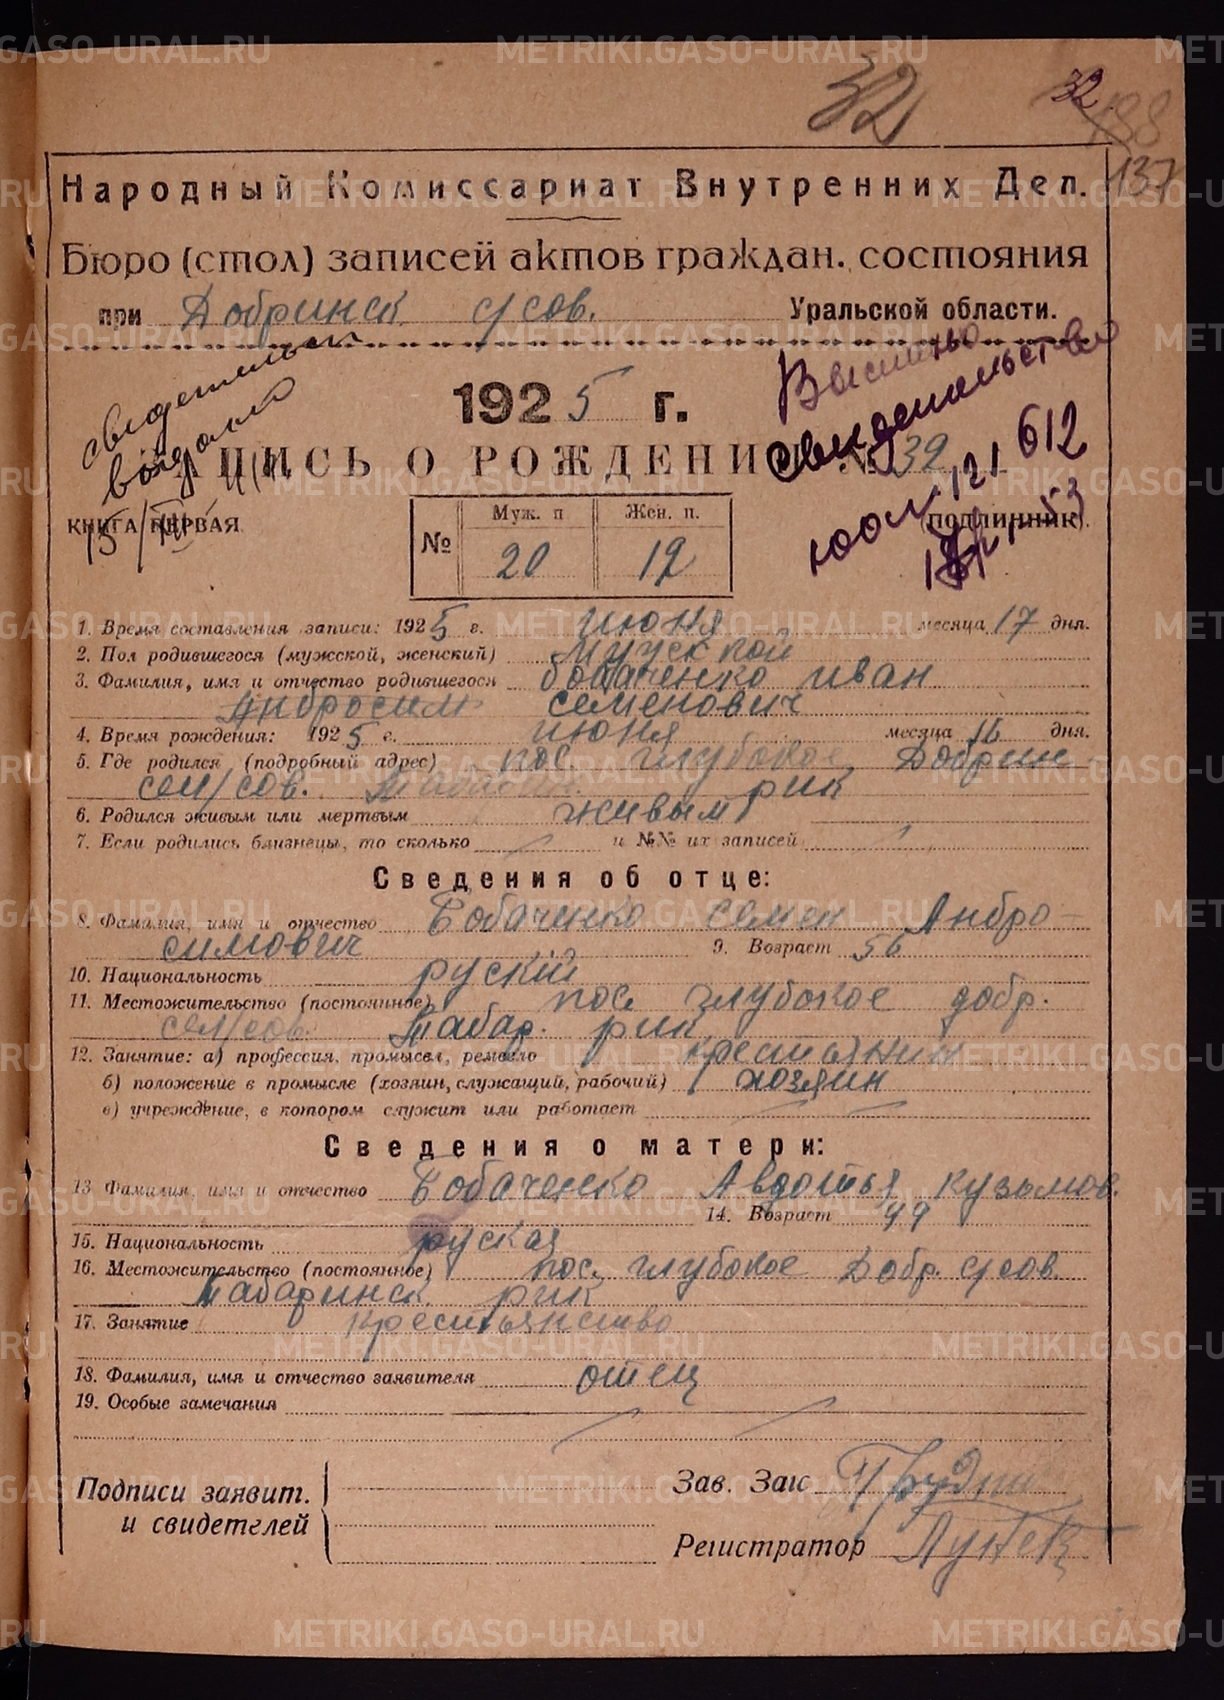 32
32
138
137
Народный Комиссариат Внутренних Дел.
Бюро (стол) записей актов граждан. состояния
при Добринск с/сов. Уральской области.
свидетельск
выдано
15/III
Выслано
свидетельство
612
1925 г.
ПИСЬ О РОЖДЕНИИ № 32
КНИГА ПЕРВАЯ (ПОДЛИННИК).
№ Муж. п Жен. п.
20 12
1. Время составления записи: 1925 г. июня месяца 17 дня.
2. Пол родившегося (мужской, женский) мужской
3. Фамилия, имя и отчество родившегося Бобаченко иван
семенович
4. Время рождения: 1925 г. июня месяца 16 дня.
5. Где родился (подробный адрес) пос. глубокое Добрин
сел/сов. рик
6. Родился живым или мертвым живым
7. Если родились близнецы, то сколько и №№ их записей
Сведения об отце:
8. Фамилия, имя и отчество Бобаченко семен Анбро-
симович 9. Возраст 56
10. Национальность руский
11. Местожительство (постоянное) пос. глубокое добр.
сел/сов. Табар. рик
12. Занятие: а) профессия, промысел, ремесло крестьянин
б) положение в промысле (хозяин, служащий, рабочий) хозяин
в) учреждение, в котором служит или работает
Сведения о матери:
13 Фамилия, имя и отчество Бобаченко Авдотья кузьмов.
14. Возраст 49
15. Национальность руская
16. Местожительство (постоянное) пос. глубокое Добр. с/сов.
Табаринск рик
17. Занятие крестьянство
18. Фамилия, имя и отчество заявителя отец
19. Особые замечания
Подписи заявит.
и свидетелей
Зав. Загс
Регистратор
METRIKI.GASO-URAL.RU